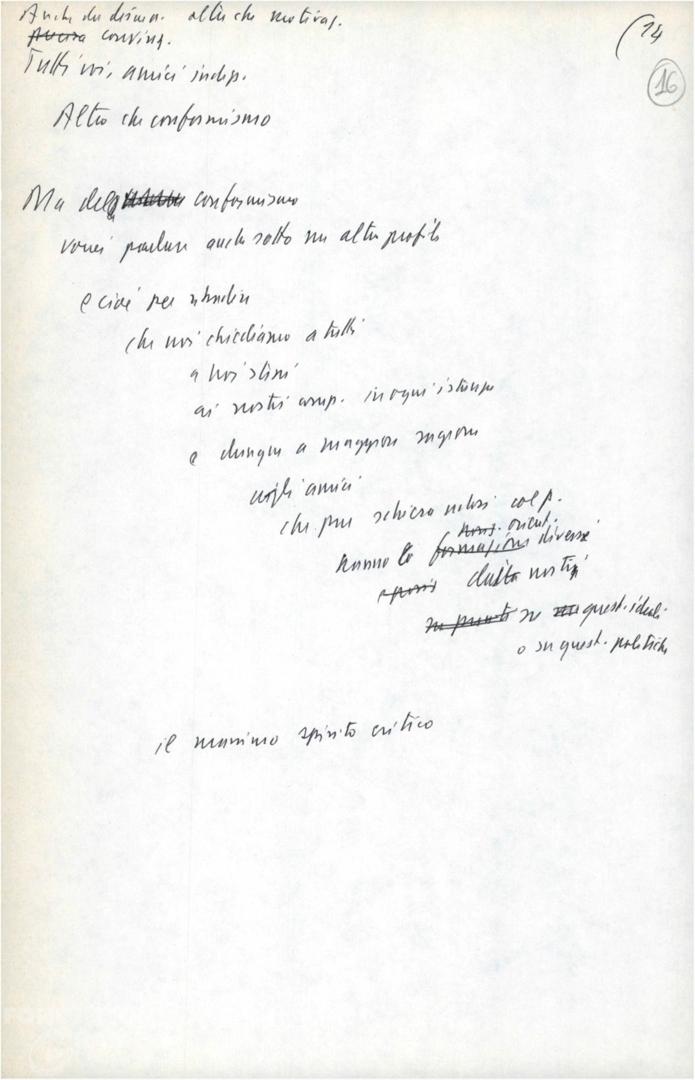 Anche da altre che motivaz.
conving.
Tutti voi, amici indip.
(14
16
Altro che conformismo
Ma del conformismo
vorrei parlare anche sotto un altro profilo
e cioè per ribadire
che noi chiediamo a tutti
a noi stessi
ai nostri comp. in ogni istanza
e dunque a maggior ragione
agli amici
che pur schierandosi col p.
orient.
hanno formazione diverse
dalla nostra
su quest. ideali
o su quest. politiche
il massimo spirito critico